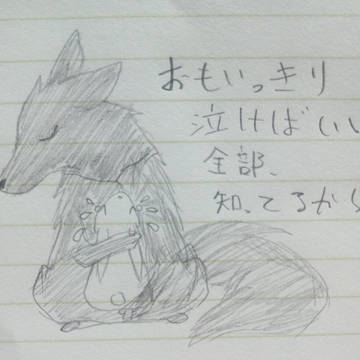 おもいっきり
泣けばいい
全部、
知ってるから